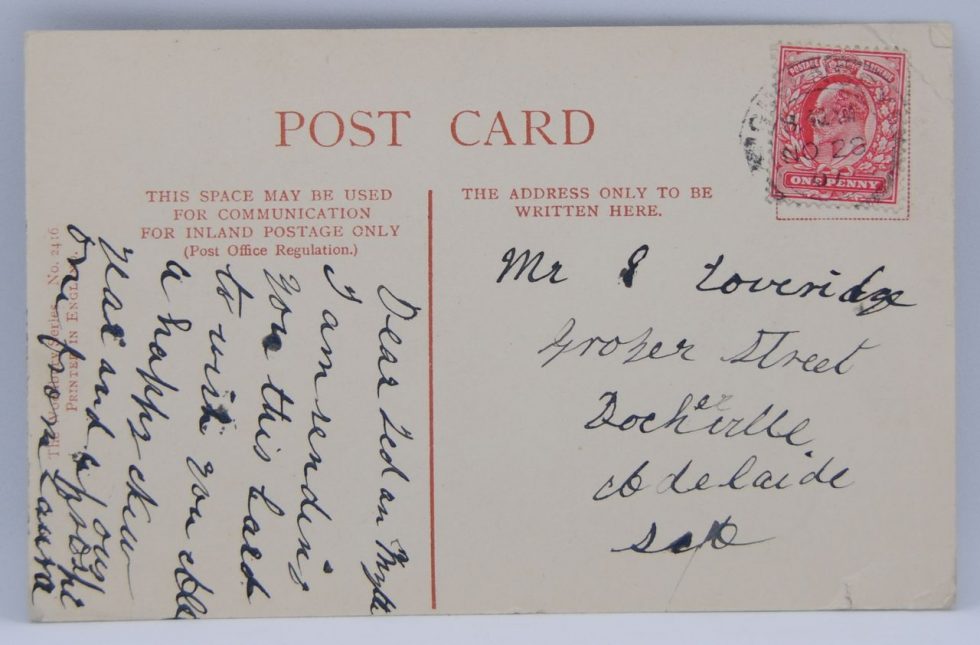 POST CARD
THIS SPACE MAY BE USED
FOR COMMUNICATION
FOR INLAND POSTAGE ONLY
(Post Office Regulation.)
THE ADDRESS ONLY TO BE
WRITTEN HERE.
POSTAGE
ONE PENNY
NO 29
Dear Ted an
I am sending
you this Card
to wish you
a happy
year and
from Laura
Mr Loveridge
Street
Adelaide
The Series No. 2416
PRINTED IN